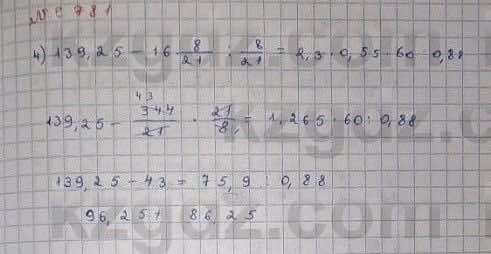 № 781
4) 139,25 - 16 8/21 : 8/21 = 2,3 · 0,55 · 60 : 0,88
139,25 - 344/21 · 21/8 = 1,265 · 60 : 0,88
43
139,25 - 43 = 75,9 : 0,88
96,25 ≠ 86,25
kzgdz.com